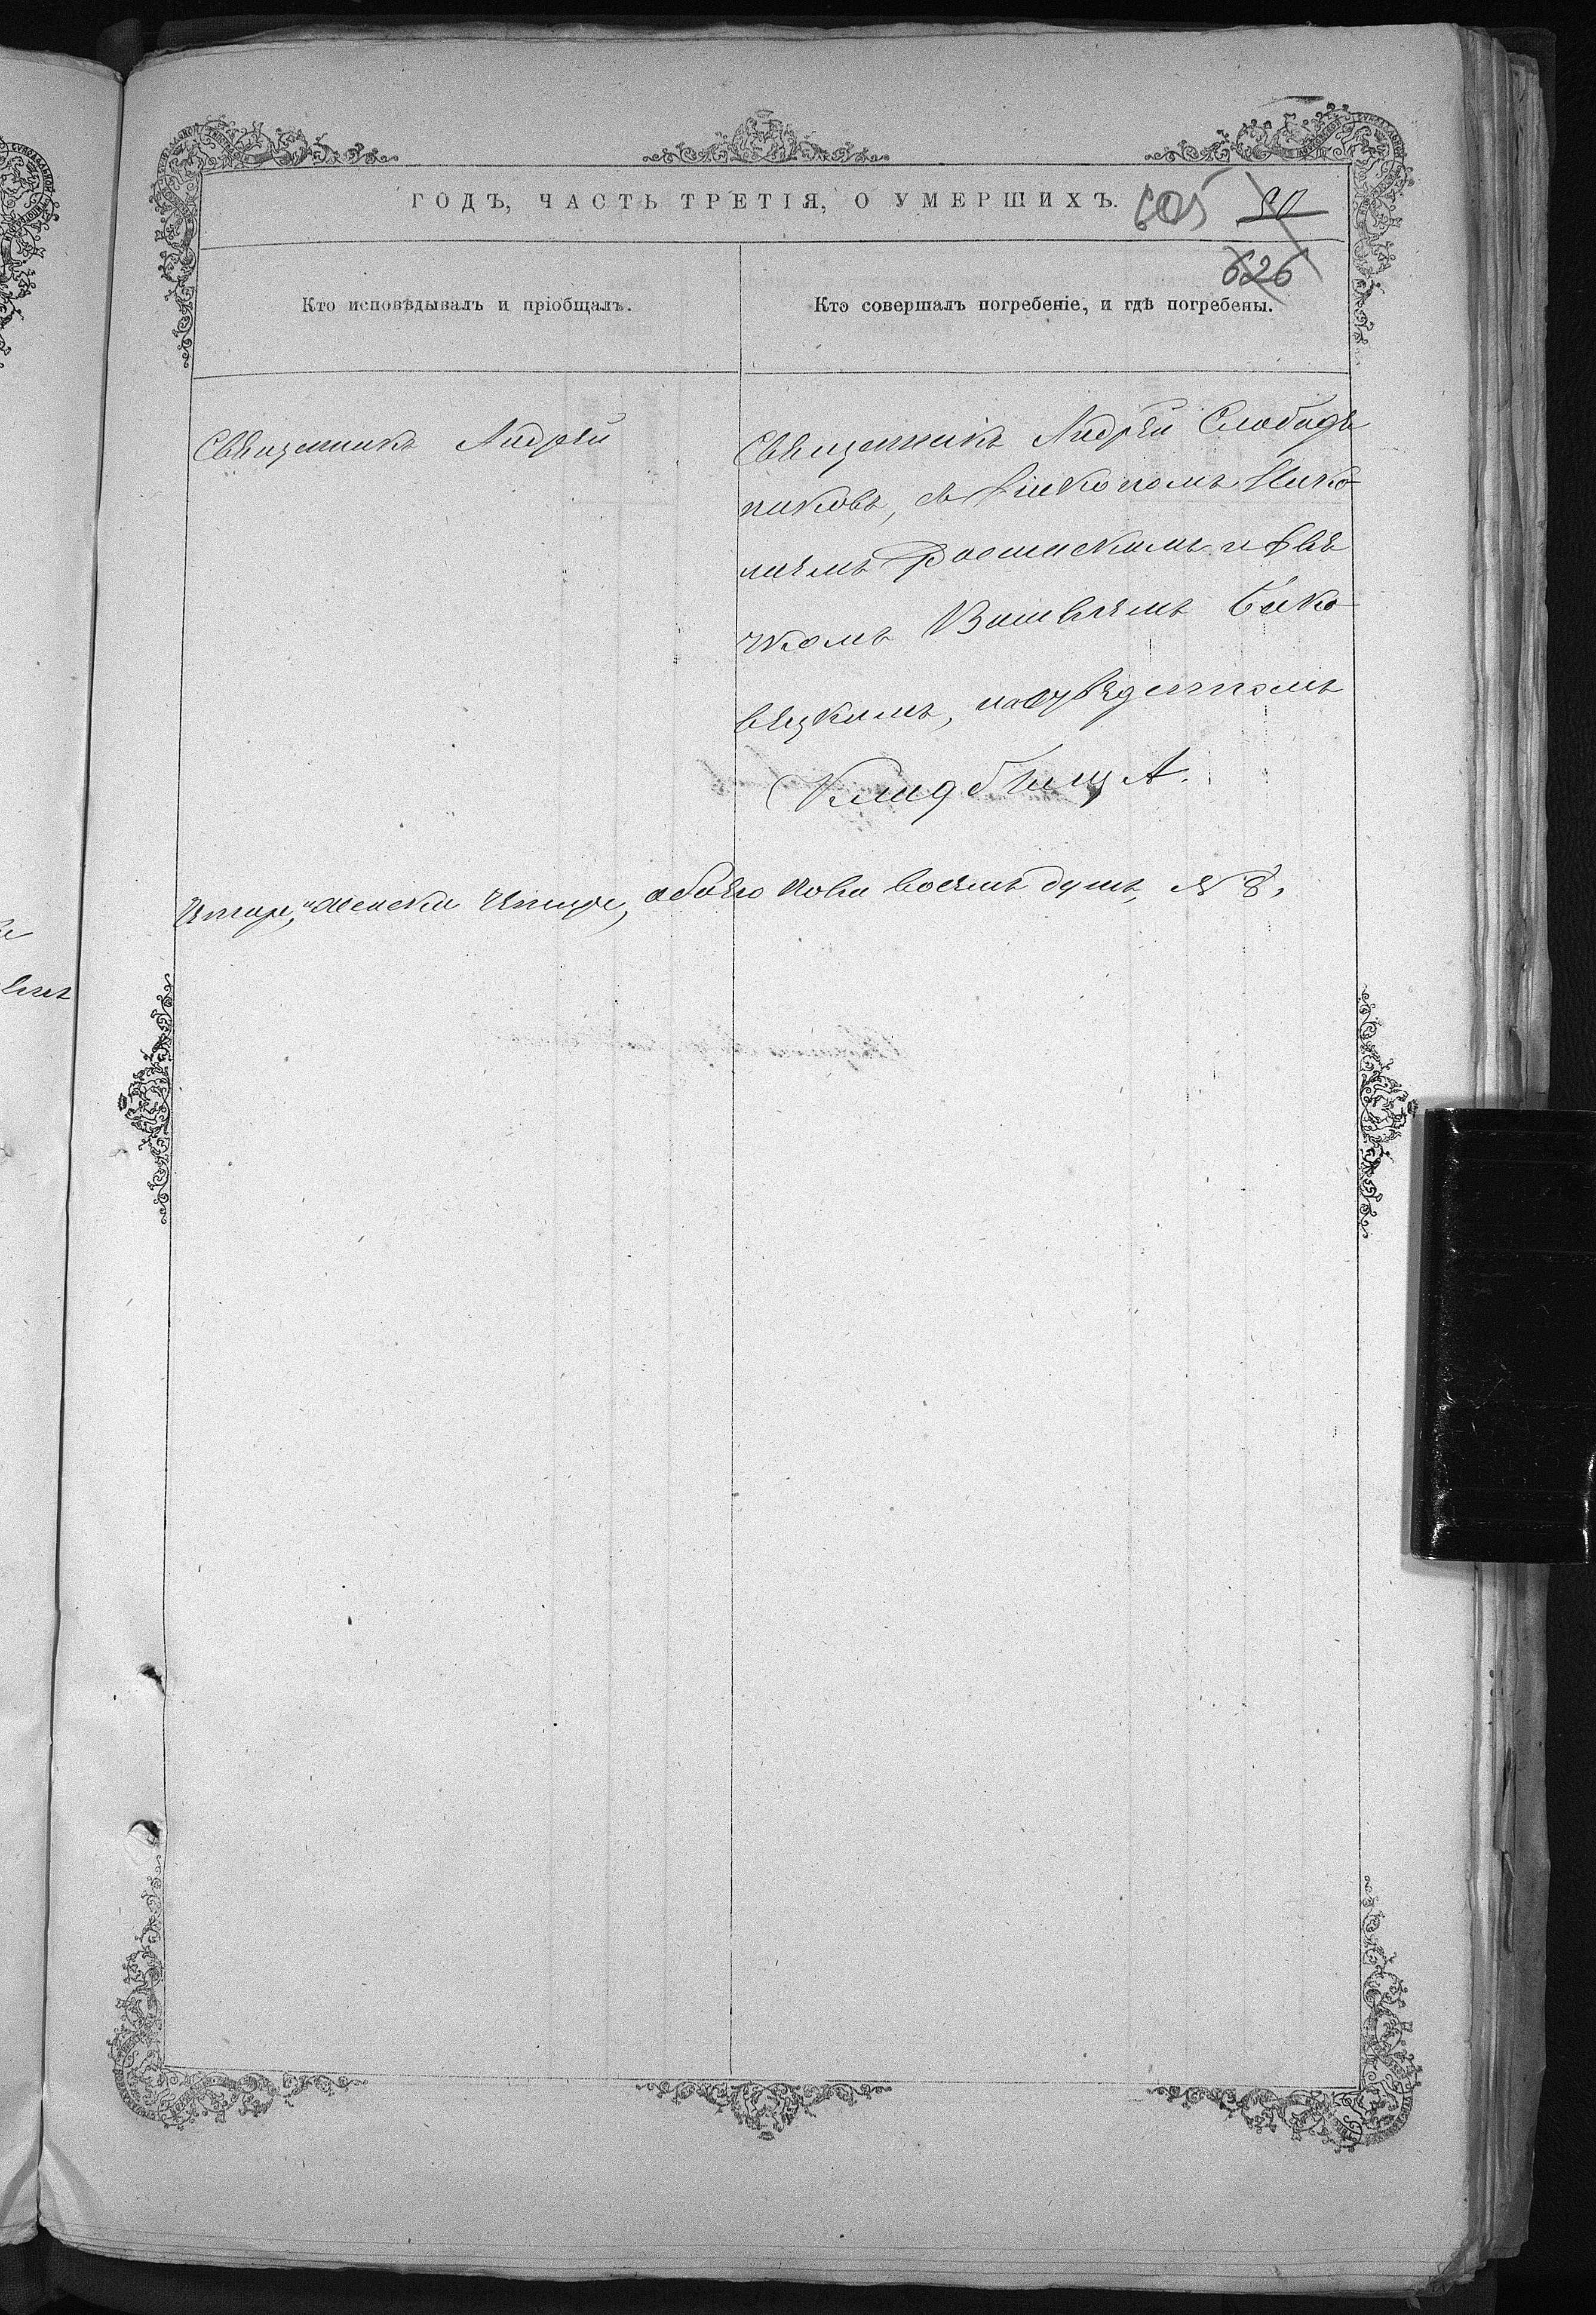 ГОДЪ, ЧАСТЬ ТРЕТІЯ, О УМЕРШИХЪ.
605 90
626
Кто исповѣдывалъ и пріобщалъ.
Кто совершалъ погребеніе, и гдѣ погребены.
Священникъ Андрей
Священникъ Андрей Слободѣ
никовъ, съ діякономъ Нико
лаемъ и дья
чкомъ
вецкимъ, на отведенномъ
Кладбищѣ.
Четыре, и женска четыре, обоего пола восемь душъ, № 8,